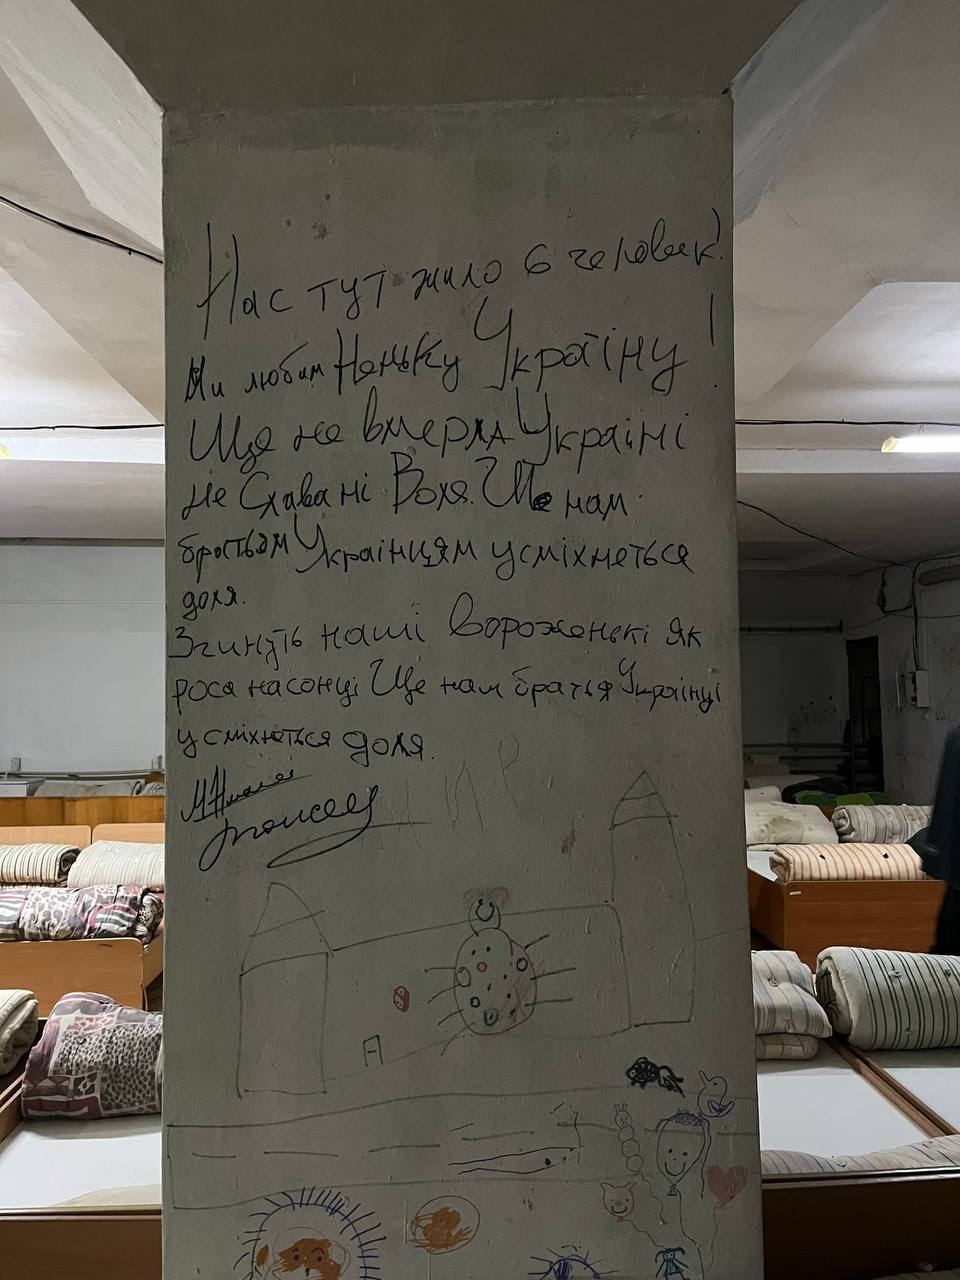 Нас тут жило 6 человек!
Ми любим Неньку Україну!
Ще не вмерла Україні
не Слава ні Воля. Ще нам
братьям Українцям усміхнеться
доля.
Згинуть наші вороженькі як
роса на сонці Ще нам братья Українці
усміхнеться доля.